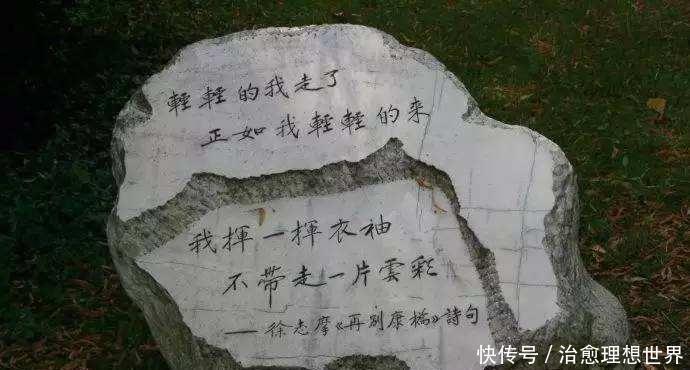 輕輕的我走了
正如我輕輕的来
我揮一揮衣袖
不带走一片雲彩
——徐志摩《再别康橋》詩句
快传号/治愈理想世界